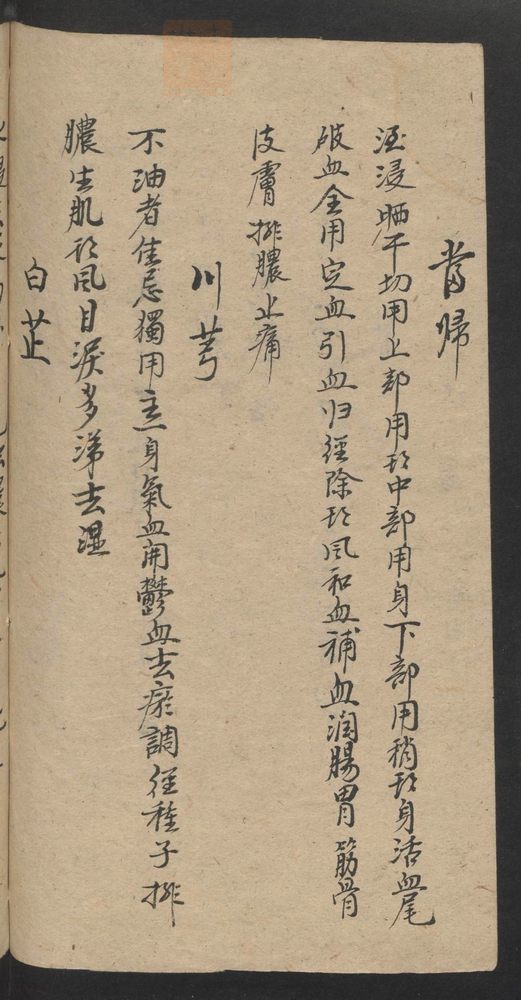 當帰
酒浸晒干切用上部用头中部用身下部用稍头身活血尾
破血全用定血引血归經除头风和血補血润腸胃筋骨
皮膚排膿止痛
川芎
不油者佳忌獨用主一身氣血開鬱血去瘀調经種子排
膿生肌头风目淚多涕去湿
白芷